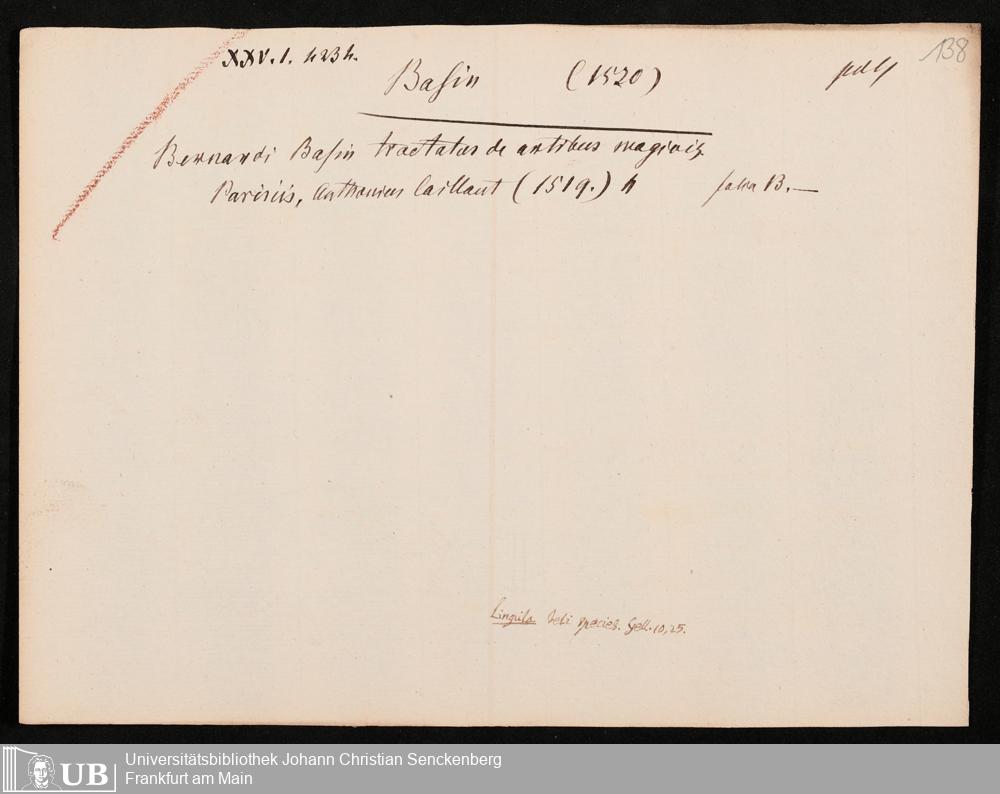 138
XXV. 1. 4234.
Basin (1520)
Bernardi Basin tractatus de artibus magicis
Parisiis, Anthonius Caillaut (1519.) 4 B. —
Lingula teli species. Gell. 10, 25.
UB Universitätsbibliothek Johann Christian Senckenberg
Frankfurt am Main